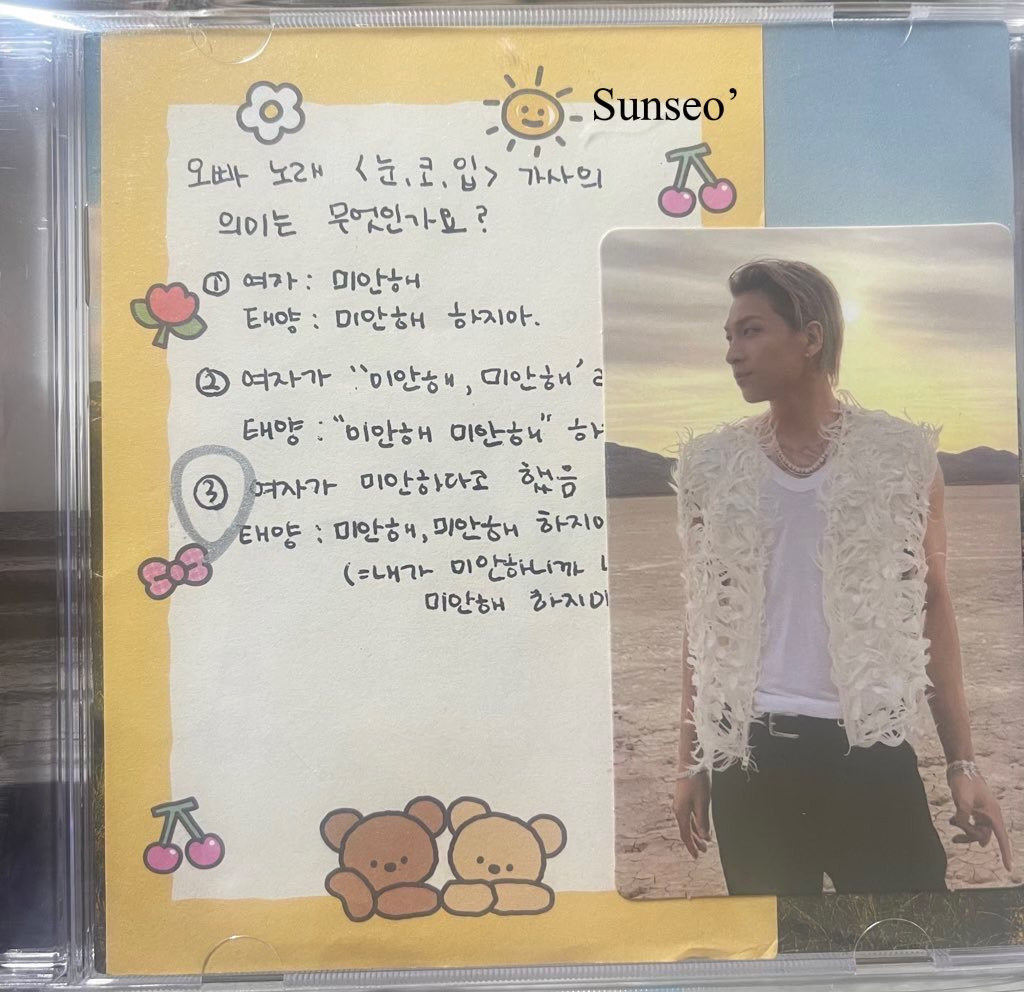 Sunseo’
오빠 노래 <눈,코,입> 가사의
의미는 무엇인가요?
① 여자 : 미안해
태양 : 미안해 하지마.
② 여자가 "미안해, 미안해'
태양 : "미안해 미안해" 하
③ 여자가 미안하다고 했음
태양 : 미안해, 미안해 하지
(=내가 미안하니까
미안해 하지